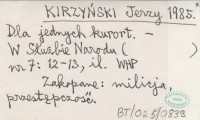 KIRZYŃSKI Jerzy 1985.
Dla jednych kurort. –
W Służbie Narodu ( )
nr 7: 12-13, il. WHP
Zakopane: milicja,
przestępczość.
BT/025/0839